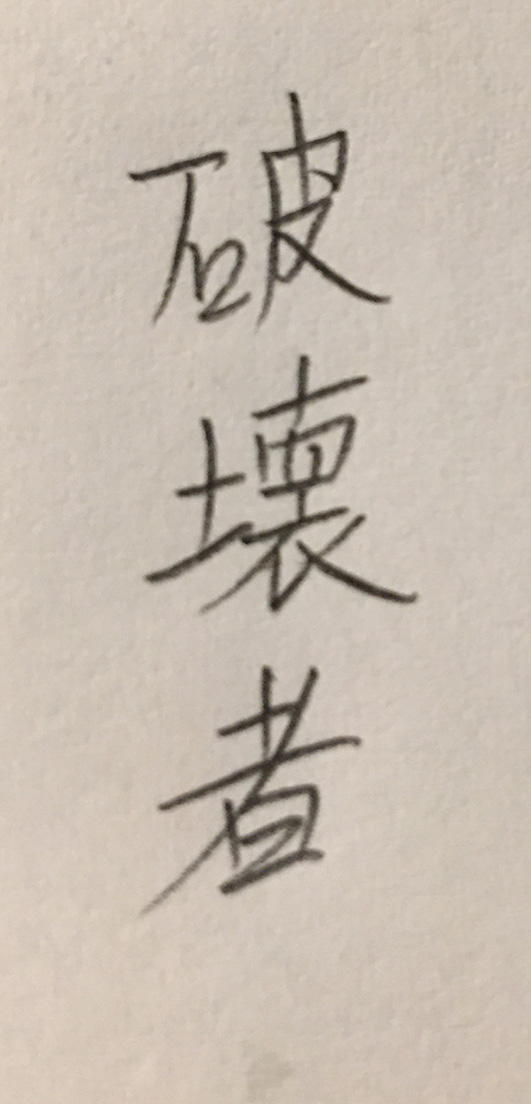 破壊者